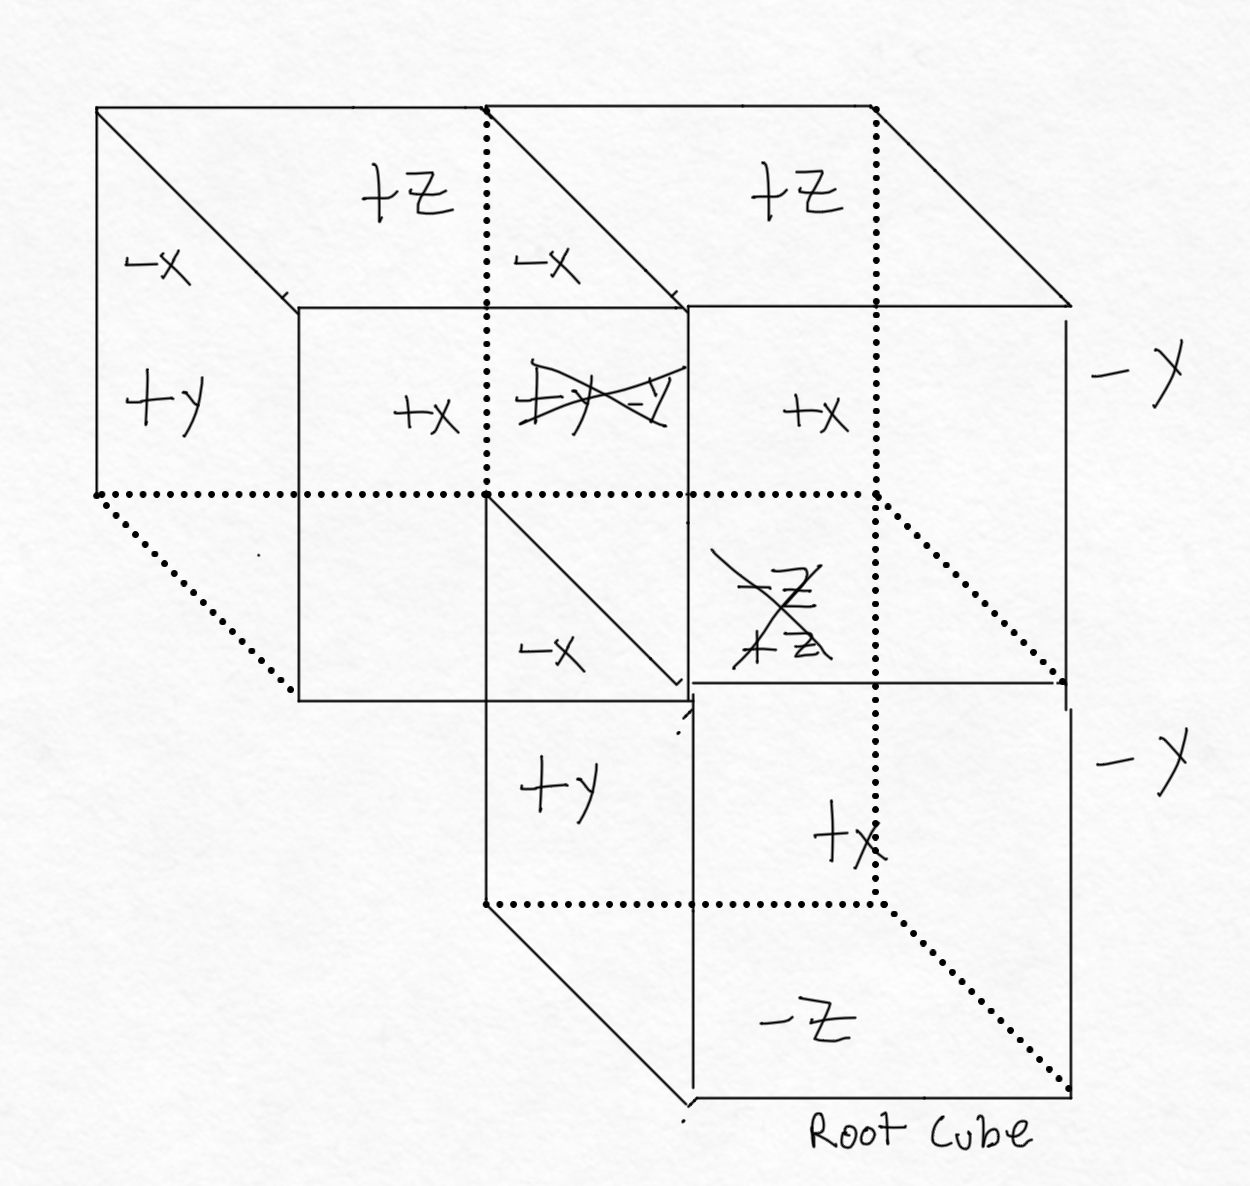 +z
+z
-x
-x
-y
+y
+x
+y -y
+x
-z
+z
-x
-y
+y
+x
-z
Root Cube